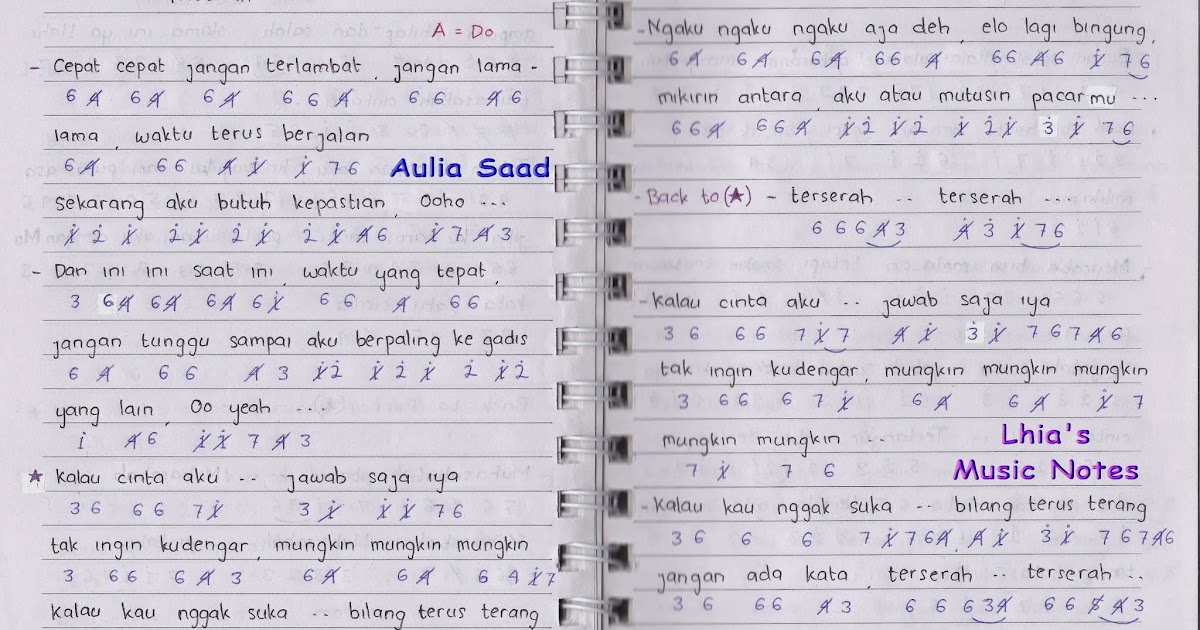 A = Do
- Cepat cepat jangan terlambat, jangan lama -
6 4̸ 6 4̸ 6 4̸ 6 6 4̸ 6 6 4̸ 6
lama, waktu terus berjalan
6 4̸ 6 6 4̸ 1̸̇ 1̸̇ 7 6
Aulia Saad
sekarang aku butuh kepastian, Ooho ...
1̸̇ 2̇ 1̸̇ 2̇ 1̸̇ 2̇ 1̸̇ 2̇ 1̸̇ 4̸ 6 1̸̇ 7 4̸ 3
- Dan ini ini saat ini, waktu yang tepat,
3 6 4̸ 6 4̸ 6 4̸ 6 1̸̇ 6 6 4̸ 6 6
jangan tunggu sampai aku berpaling ke gadis
6 4̸ 6 6 4̸ 3 1̸̇ 2̇ 1̸̇ 2̇ 1̸̇ 2̇ 1̸̇ 2̇
yang lain, Oo yeah ...
1̇ 4̸ 6 1̸̇ 1̸̇ 7 4̸ 3
★ Kalau cinta aku .. jawab saja iya
3 6 6 6 7 1̸̇ 3 1̸̇ 1̸̇ 1̸̇ 7 6
tak ingin kudengar, mungkin mungkin mungkin
3 6 6 6 4̸ 3 6 4̸ 6 4̸ 6 4 1̸̇ 7
kalau kau nggak suka .. bilang terus terang
- Ngaku ngaku ngaku aja deh, elo lagi bingung,
6 4̸ 6 4̸ 6 4̸ 6 6 4̸ 6 6 4̸ 6 1̸̇ 7 6
mikirin antara, aku atau mutusin pacar mu ...
6 6 4̸ 6 6 4̸ 1̸̇ 2̇ 1̸̇ 2̇ 1̸̇ 2̇ 1̸̇ 3̇ 1̸̇ 7 6
- Back to (★) - terserah .. terserah ...
6 6 6 4̸ 3 4̸ 3 1̸̇ 7 6
- Kalau cinta aku .. jawab saja iya
3 6 6 6 7 1̸̇ 7 4̸ 1̸̇ 3̇ 1̸̇ 7 6 7 4̸ 6
tak ingin kudengar, mungkin mungkin mungkin
3 6 6 6 7 1̸̇ 6 4̸ 6 4̸ 1̸̇ 7
mungkin mungkin ...
7 1̸̇ 7 6
Lhia's
Music Notes
- Kalau kau nggak suka .. bilang terus terang
3 6 6 6 7 1̸̇ 7 6 4̸ 4̸ 1̸̇ 3̇ 1̸̇ 7 6 7 4̸ 6
jangan ada kata terserah .. terserah ..
3 6 6 6 4̸ 3 6 6 6 3 4̸ 6 6 5̸ 4̸ 3